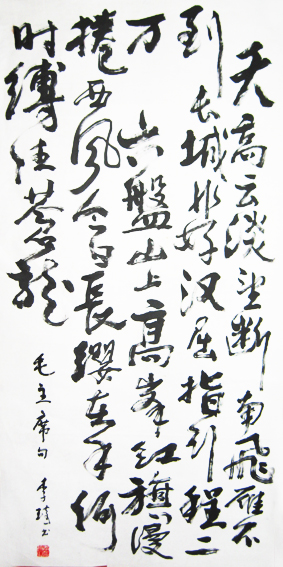 天高云淡望断南飞雁不
到长城非好汉屈指行程二
万 六盤山上高峯红旗漫
捲西风今日長缨在手何
时缚住苍龙
毛主席句 李